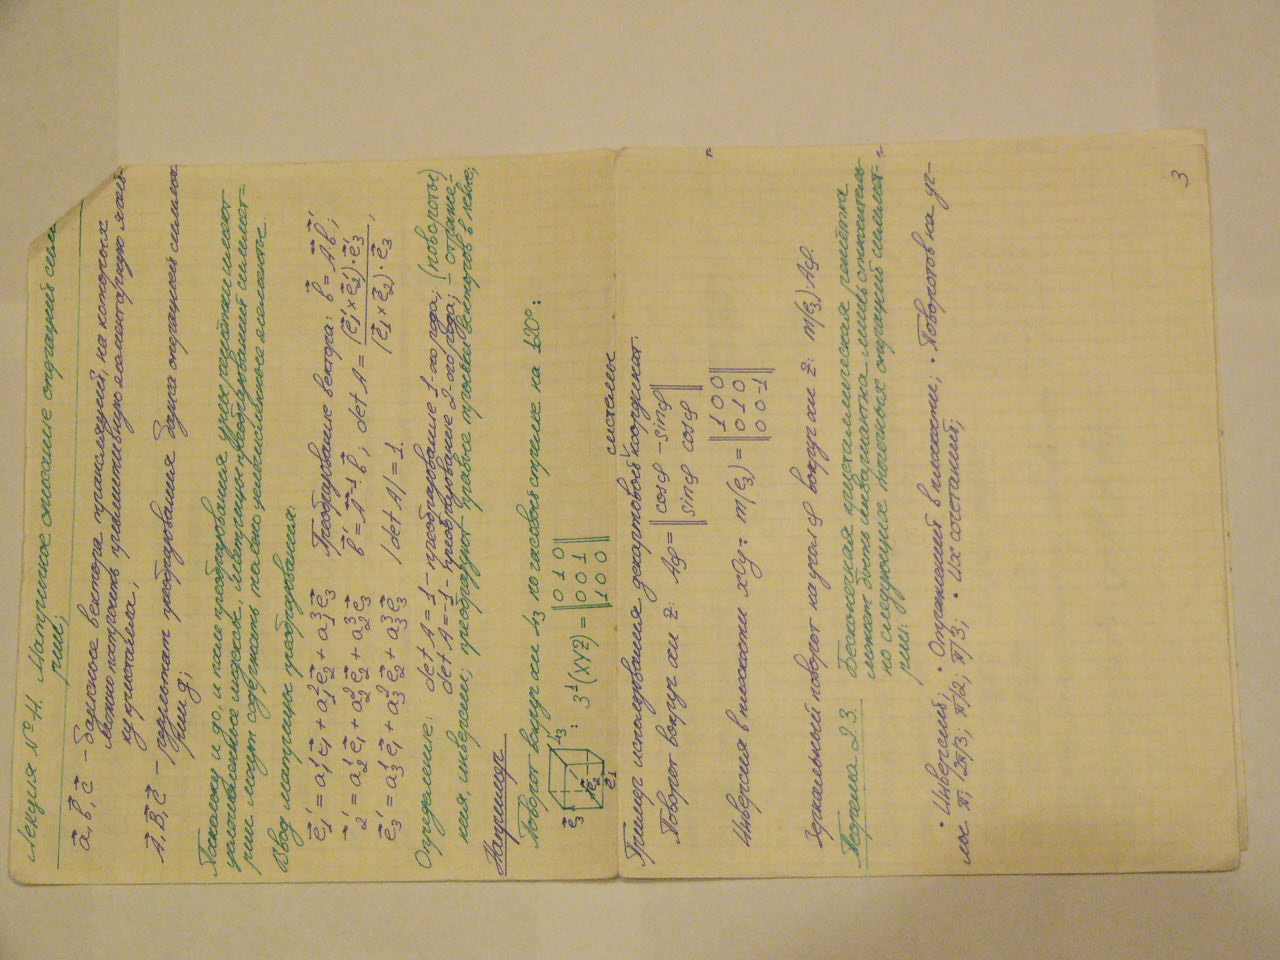 Лекция № 11. Матричное описание операций сим
рии;
a⃗, b⃗, c⃗ – базисное вектора трансляций, на которых
можно построить примитивную элементарную ячей-
ку кристалла;
A⃗, B⃗, C⃗ – результат преобразования базиса операцией симмет
рии g;
Поскольку и до, и после преобразования узлы решётки имеют
целочисленные индексы, матрицы преобразований симмет-
рии могут содержать только целочисленные элементы
Ввод матрицы преобразования:
e⃗₁' = a₁¹e⃗₁ + a₁²e⃗₂ + a₁³e⃗₃ Преобразование вектора: b⃗ = A⃗b⃗';
⃗₂' = a₂¹e⃗₁ + a₂²e⃗₂ + a₂³e⃗₃ b⃗' = A⃗⁻¹b⃗; det A = (e⃗₁' × e⃗₂')·e⃗₃' / (e⃗₁ × e⃗₂)·e⃗₃,
e⃗₃' = a₃¹e⃗₁ + a₃²e⃗₂ + a₃³e⃗₃ |det A| = 1.
Определение: det A = 1 – преобразование 1-ого рода; (повороты)
det A = -1 – преобразование 2-ого рода; – отраже-
ния, инверсии; преобразуют правые тройки векторов в левые;
Например
Поворот вокруг оси L₃ по часовой стрелке на 120°:
e⃗₃ e⃗₂ e⃗₁ L₃ : 3¹(XYZ) = ‖ 0 1 0
0 0 1
1 0 0 ‖
Пример использования декартовой системы координат.
Поворот вокруг оси z: Aφ = ‖ cosφ -sinφ
sinφ cosφ ‖
Инверсия в плоскости xOy = m(e₃) = ‖ 1 0 0
0 1 0
0 0 -1 ‖
Зеркальный поворот на угол φ вокруг оси z: m(e₃)·Aφ.
Теорема 2.3. Бесконечная кристаллическая решётка
может быть инвариантна лишь относитель-
но следующих точечных операций симмет-
рии:
• Инверсий; • Отражений в плоскости; • Поворотов на уг-
лы π; 2π/3, π/2; π/3; • Их сочетаний;
3